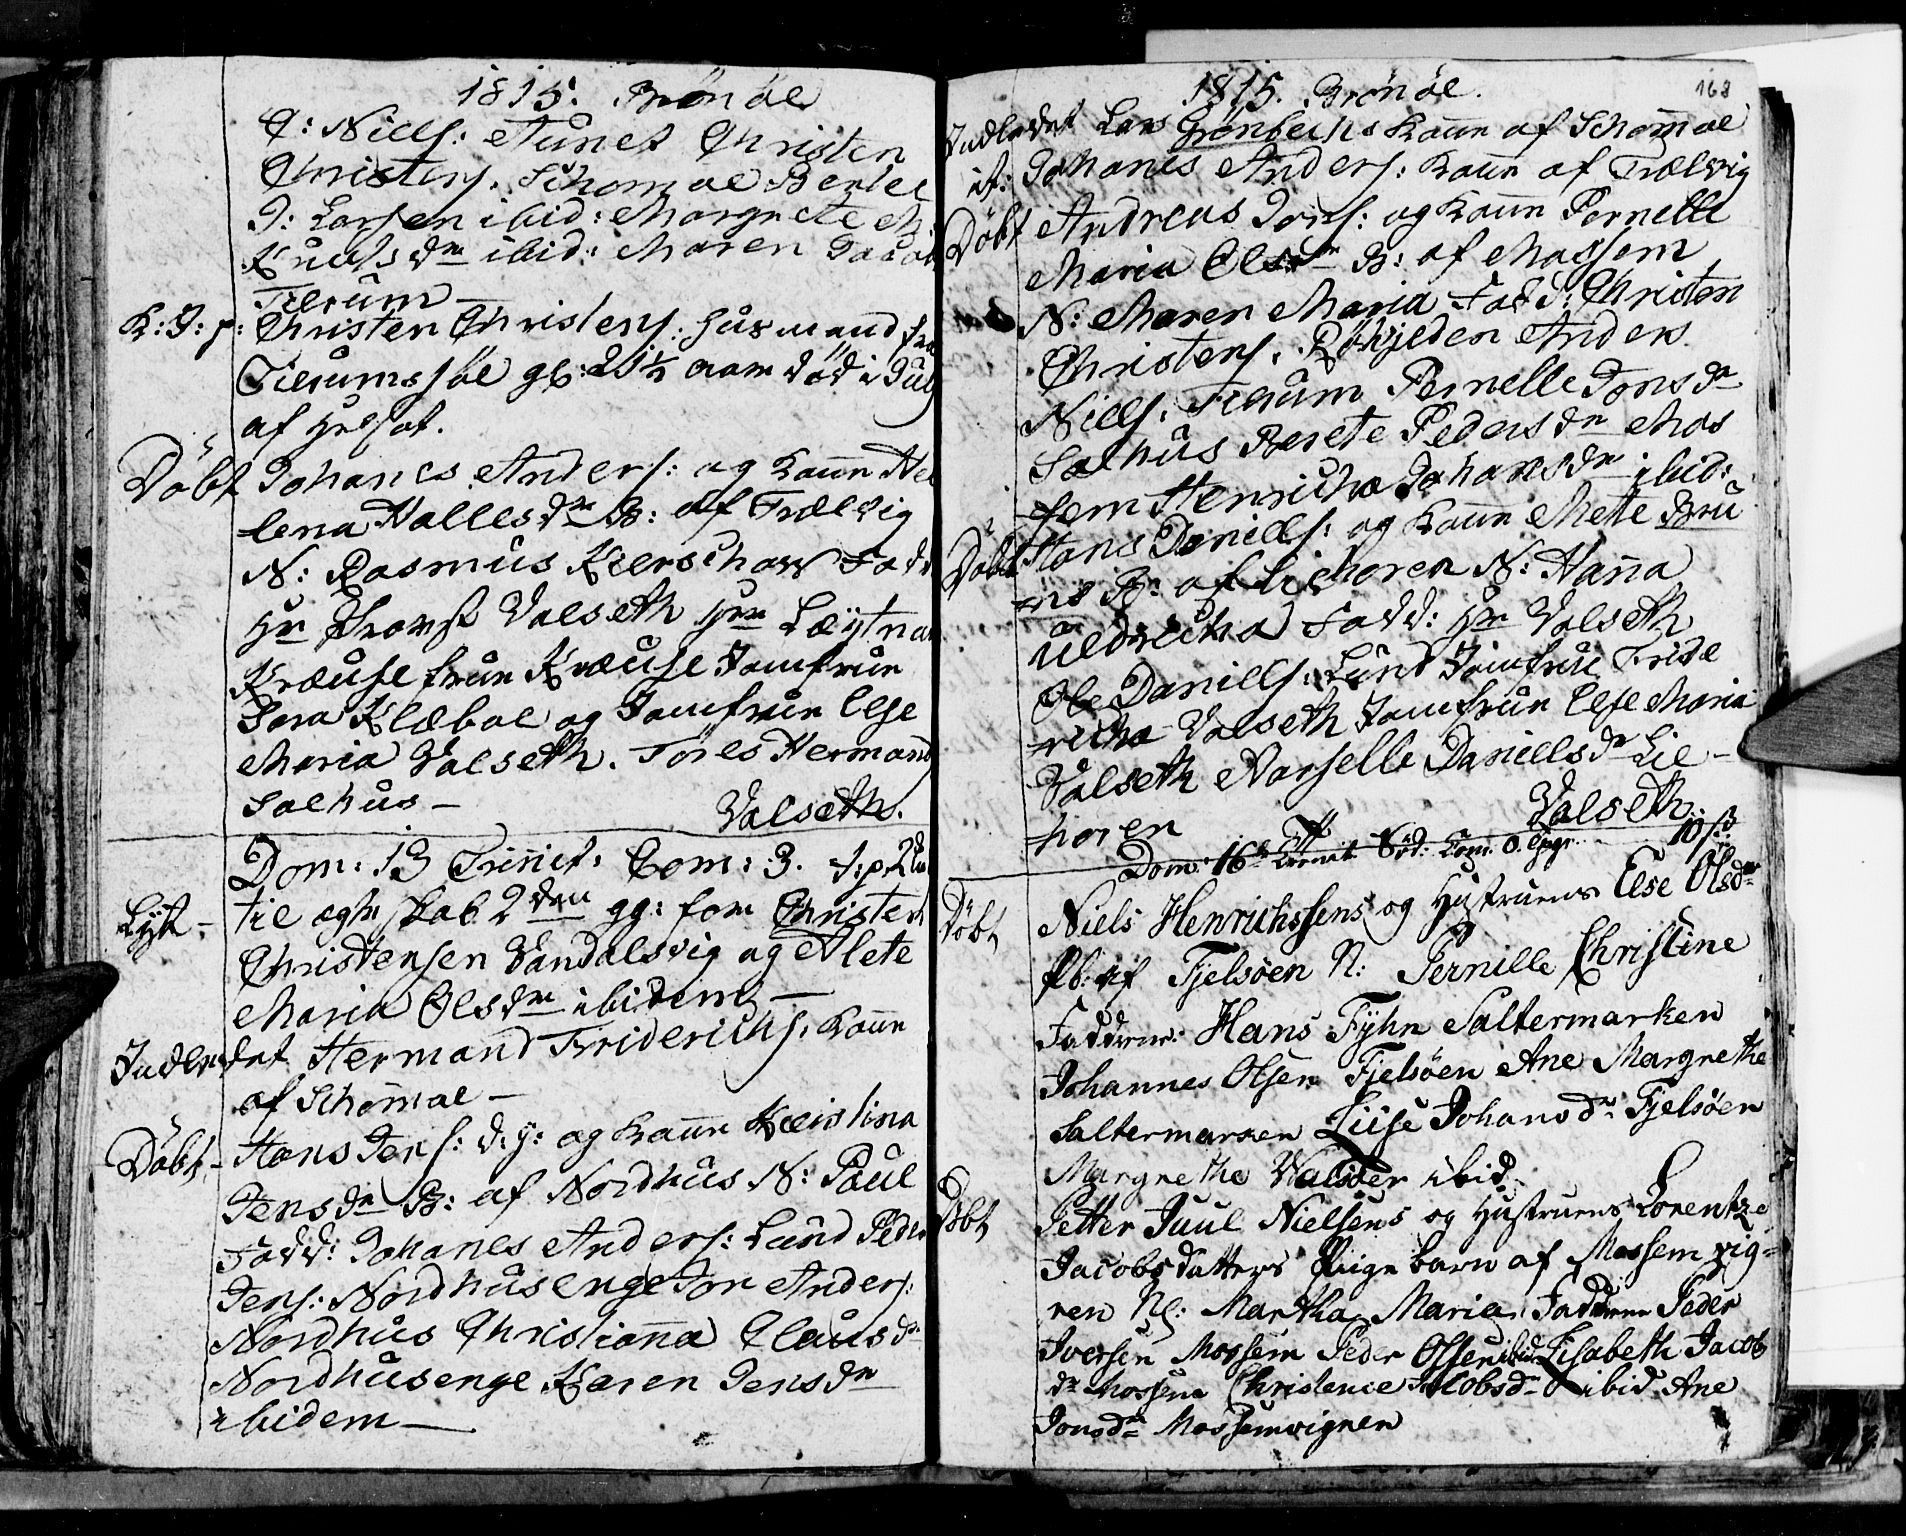 1815. Brönöe
C: Niels: Aunet Christen
Christens. Schomoe Bertel
J: Larsen ibid: Margrete
Knuds dr ibid: Maren Jacob
Tilrum
K: J: p: Christen Christens: Husmand fra
Tilrumsjöe gl: 21½ aar död i Jul
af Helsot.
Döbt Johanes Anders: og Kaane Hel
lena Halles dr B: af Trælvig
N: Rasmus Kierschow Fadd
Hr Provst Valseth Hr Løytnan
Kræuse fruen Kræuse Jomfrue
Sara Klæboe og Jomfrue Else
Maria Valseth. Tores Hermand
Salhus –
Valseth.
Dom: 13 Trinit: Com: 3.
Lyst – til ægteskab 2den gg: for Christen
Christensen Vandalsvig og Alete
Maria Olsdr ibidem –
Indledet Hermand Friderichs: Kaane
af Schomoe –
Döbt – Hans Jens: d: y: og Kaane Kristina
Jensdr B: af Nordhus N: Paul
Fadd: Johanes Anders: Lund Peder
Jens: Nordhusenge Jon Anders:
Nordhus Christianna Clausdr
Nordhusenge Karen Jensdr
ibidem –
1815. Brönöe. 168
Indledet Lars Grønbechs Kaane af Schomoe
it: Johanes Anders: Kaane af Trælvig
Döbt Andreas Jons: og Kaane Pernelle
Maria Olsdr B: af Mossem
N: Maren Maria Fadd: Christen
Christens. Röhjelden Anders
Niels. Tilrum Pernelle Jonsdr
Salhus Berete Pedersdr Mos
sem Henricha Johansdr ibid:
Döbt Hans Daniels: og Kaane Mette Bru
ns B: af Liehoren N: Hanna
Uldricha Fadd: Hr Valseth
Ole Daniels: Lund Jomfrue Fride
richa Valseth Jomfrue Else Maria
Valseth Marselle Danielsdr Lie –
horen
Valseth.
Dom: 16de Trinit Com. 0.
Döbt Niels Henrichssens og Hustruens Else Olsdr
Pb: af Tjelsöen N: Pernille Christine
Faddere: Hans Fyhn Saltermarken
Johannes Olsen Tjelsöen Ane Margrethe
Saltermarken Lüse Johansdr Tjelsöen
Margrethe Valsöer ibid.
Döbt Petter Juul Nielsens og Hustruens Lorentze
Jacobsdatters Pigebarn af Mossemvig-
nen N: Martha Maria, Faddere Peder
Iversen Mossem Peder Olsen ibid Lisabeth Jacob
dr Mossem Christence Jacobsdr ibid Ane
Jonsdr Mossemvignen